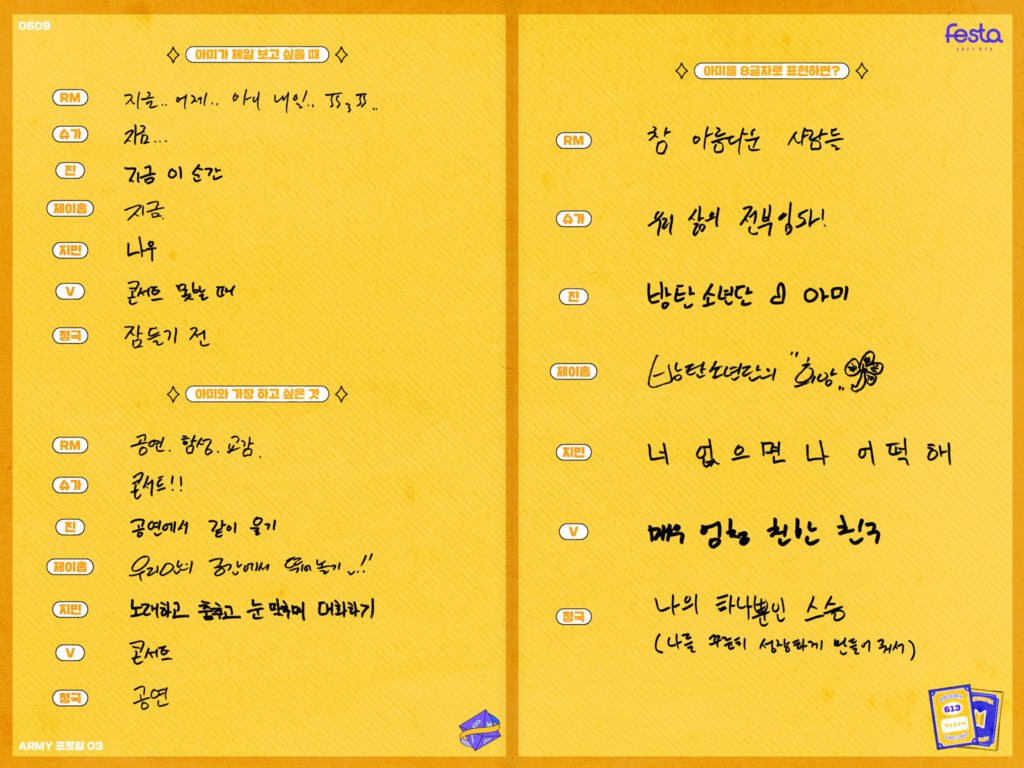 0609
아미가 제일 보고 싶을 때
RM 지금.. 어제.. 아니 내일.. ㅠ
슈가 지금...
진 지금 이 순간
제이홉 지금.
지민 나우
V 콘서트 못할 때
정국 잠들기 전
아미와 가장 하고 싶은 것
RM 공연. 함성. 교감.
슈가 콘서트!!
진 공연에서 같이 울기
제이홉 우리만의 공간에서 뛰어놀기
지민 노래하고 춤추고 눈 맞추며 대화하기
V 콘서트
정국 공연
ARMY 프로필 03
festa
2021 BTS
아미를 8글자로 표현하면?
RM 참 아름다운 사람들
슈가 우리 삶의 전부입니다!
진 방탄소년단 아미
제이홉 방탄소년단의 "희망"
지민 너 없으면 나 어떡해
V 매우 엄청 친한 친구
정국 나의 하나뿐인 스승
(나를 꾸준히 성장하게 만들어 줘서)
613